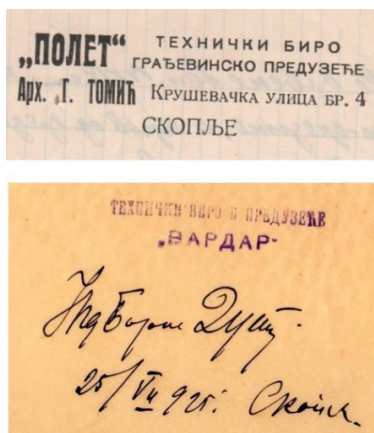 „ПОЛЕТ“ ТЕХНИЧКИ БИРО
ГРАЂЕВИНСКО ПРЕДУЗЕЋЕ
Арх. Г. ТОМИЋ КРУШЕВАЧКА УЛИЦА БР. 4
СКОПЉЕ
ТЕХНИЧКИ БИРО И ПРЕДУЗЕЋЕ
„ВАРДАР“
25/VII 925.